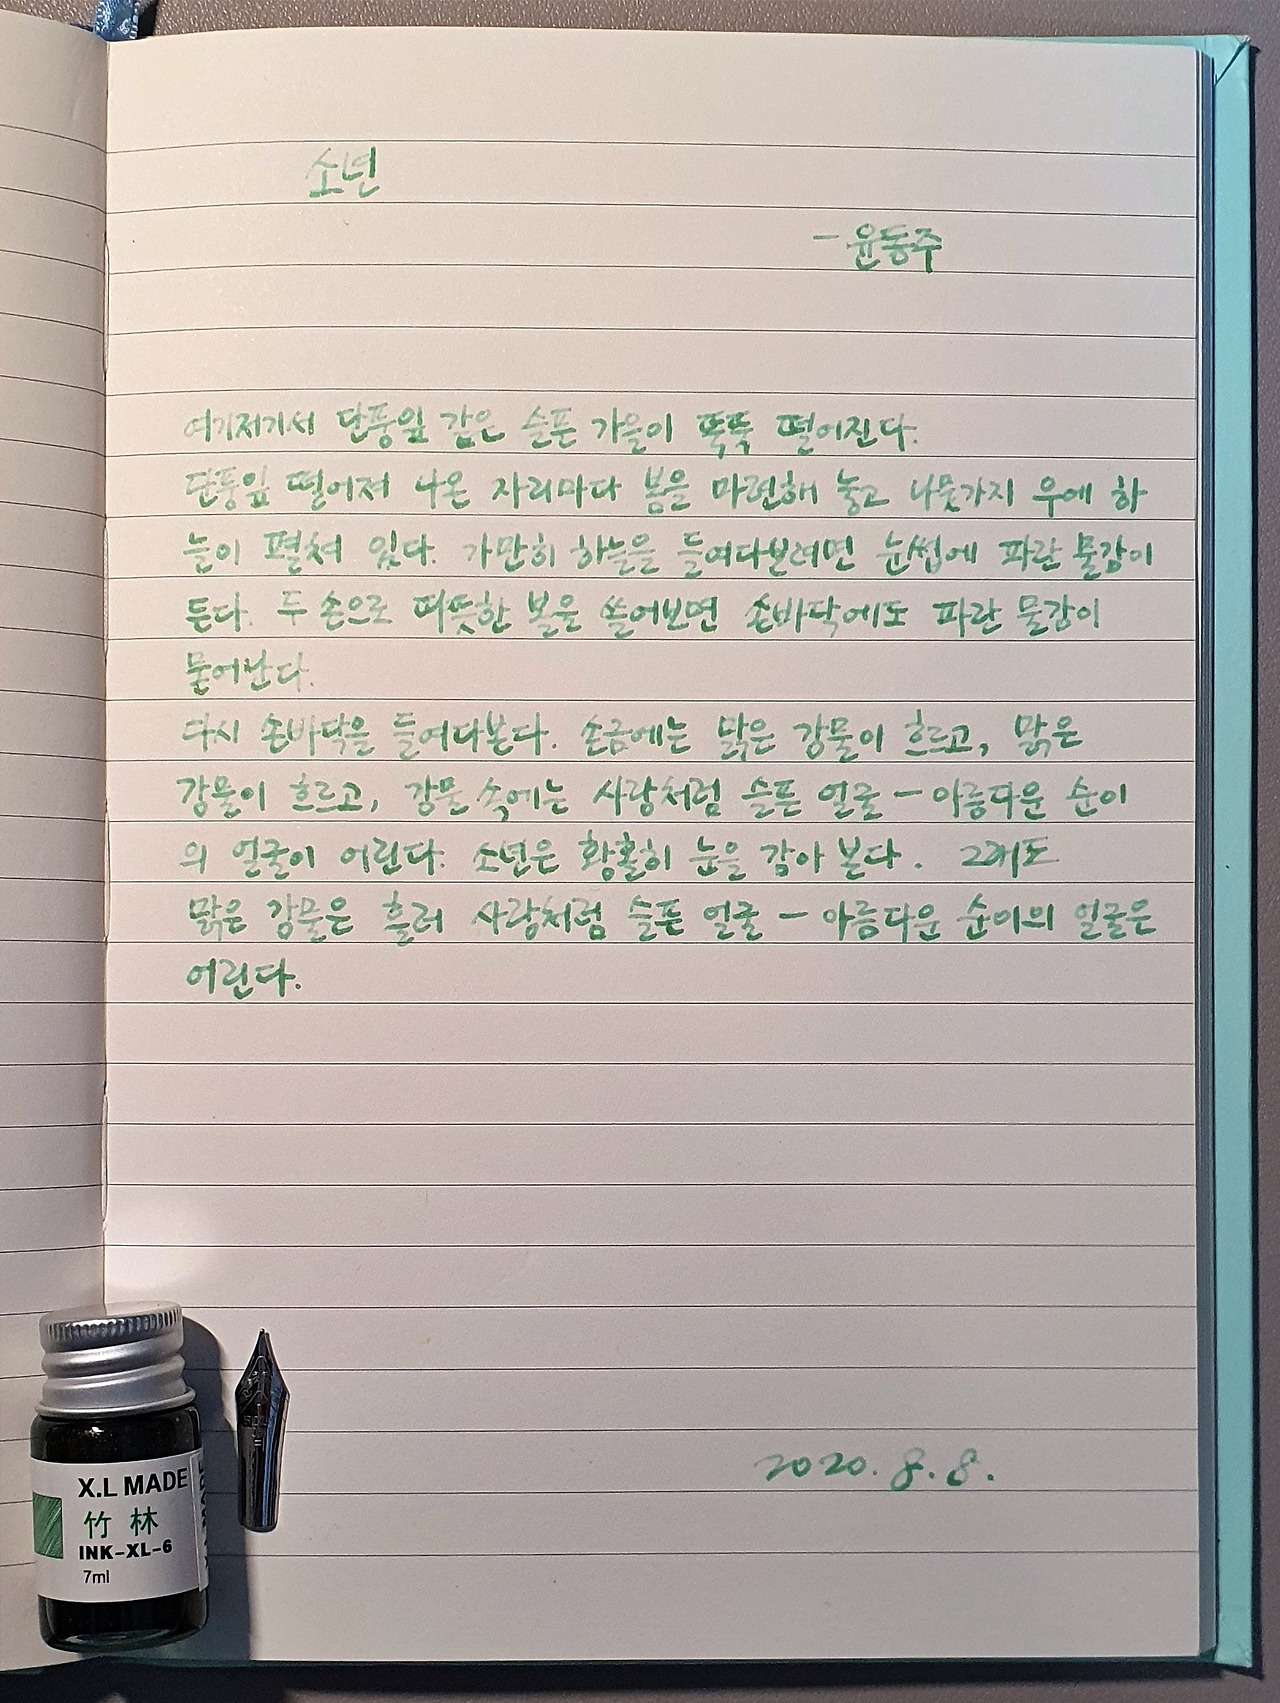 소년
- 윤동주
여기저기서 단풍잎 같은 슬픈 가을이 뚝뚝 떨어진다.
단풍잎 떨어져 나온 자리마다 봄을 마련해 놓고 나뭇가지 우에 하
늘이 펼쳐 있다. 가만히 하늘을 들여다보려면 눈썹에 파란 물감이
든다. 두 손으로 따뜻한 볼을 쓸어보면 손바닥에도 파란 물감이
묻어난다.
다시 손바닥을 들여다본다. 손금에는 맑은 강물이 흐르고, 맑은
강물이 흐르고, 강물 속에는 사랑처럼 슬픈 얼굴 - 아름다운 순이
의 얼굴이 어린다. 소년은 황홀히 눈을 감아 본다. 그래도
맑은 강물은 흘러 사랑처럼 슬픈 얼굴 - 아름다운 순이의 얼굴은
어린다.
2020. 8. 8.
X.L MADE
竹 林
INK-XL-6
7ml